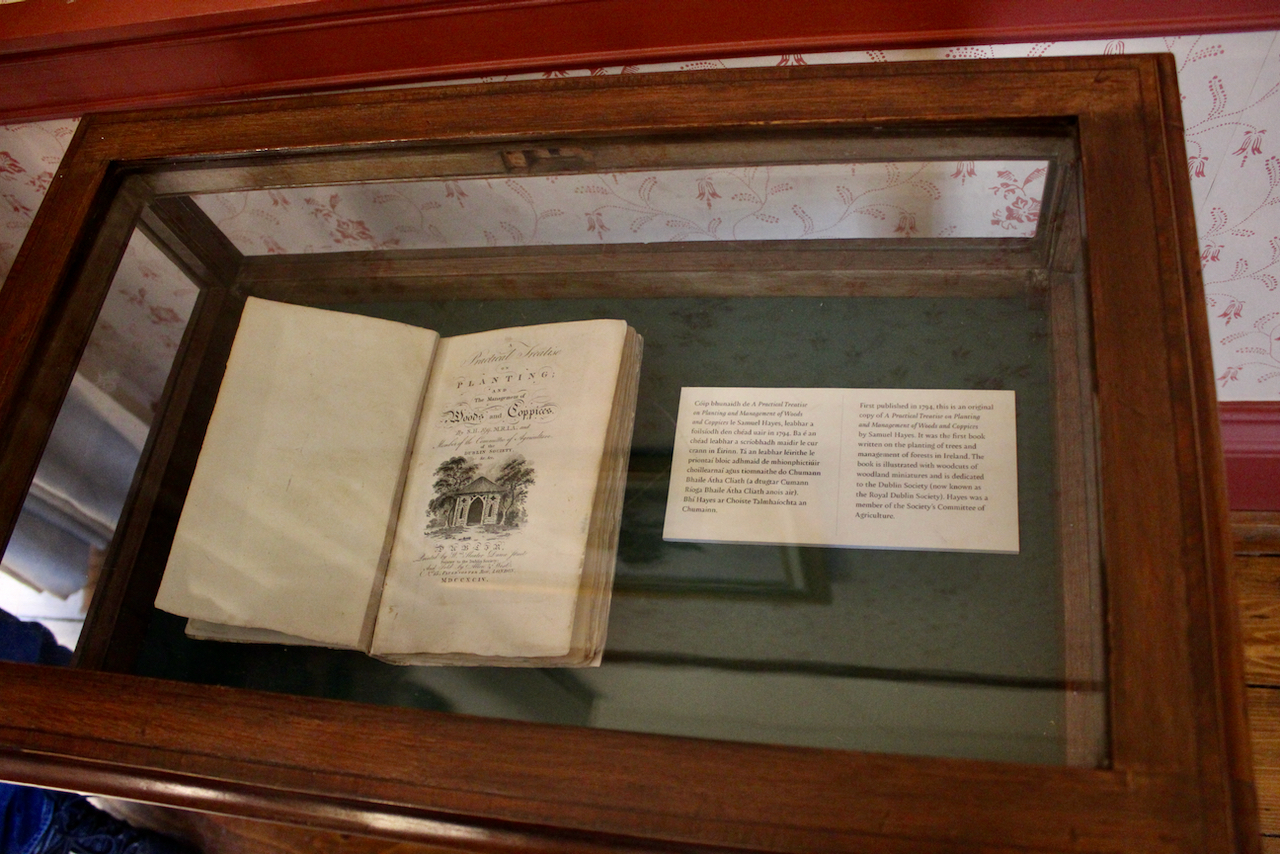 A
Practical Treatise
ON
PLANTING;
AND
The Management of
Woods and Coppices.
By S.H. Esq. M.R.I.A. and
Member of the Committee of Agriculture
of the
DUBLIN SOCIETY
DUBLIN,
Printed by Wm. Sleater, Dame Street
And Sold by Allen & West,
LONDON.
MDCCXCIV.
Cóip bhunaidh de A Practical Treatise
on Planting and Management of Woods
and Coppices le Samuel Hayes, leabhar a
foilsíodh den chéad uair in 1794. Ba é an
chéad leabhar a scríobhadh maidir le cur
crann in Éirinn. Tá an leabhar léirithe le
priontaí bloic adhmaid de mhionphictiúir
choillearnaí agus tiomnaithe do Chumann
Bhaile Átha Cliath (a dtugtar Cumann
Ríoga Bhaile Átha Cliath anois air).
Bhí Hayes ar Choiste Talmhaíochta an
Chumainn.
First published in 1794, this is an original
copy of A Practical Treatise on Planting
and Management of Woods and Coppices
by Samuel Hayes. It was the first book
written on the planting of trees and
management of forests in Ireland. The
book is illustrated with woodcuts of
woodland miniatures and is dedicated
to the Dublin Society (now known as
the Royal Dublin Society). Hayes was a
member of the Society's Committee of
Agriculture.